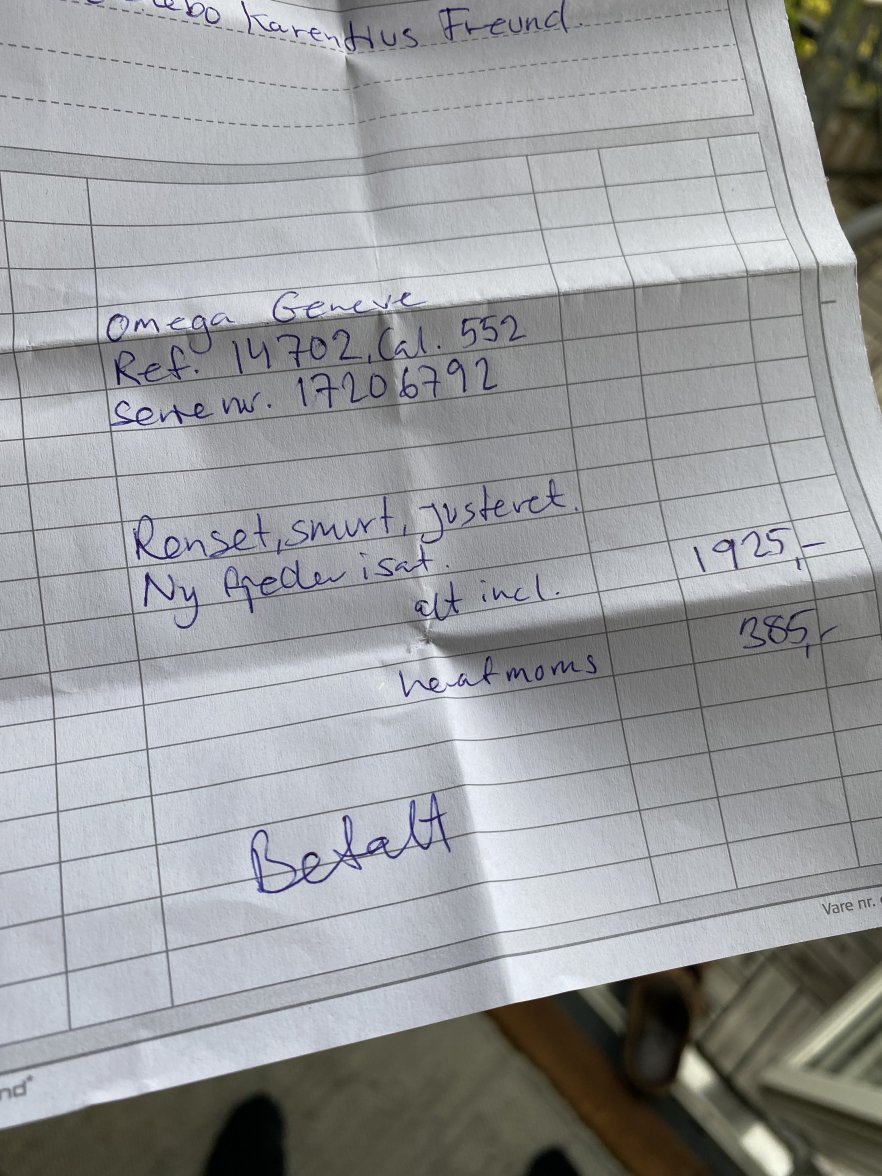 Karentius Freund.
Omega Geneve
Ref. 14702, Cal. 552
Serie nr. 17206792
Renset, smurt, justeret.
Ny fjeder isat.
alt incl. 1925,-
heraf moms 385,-
Betalt
Vare nr.